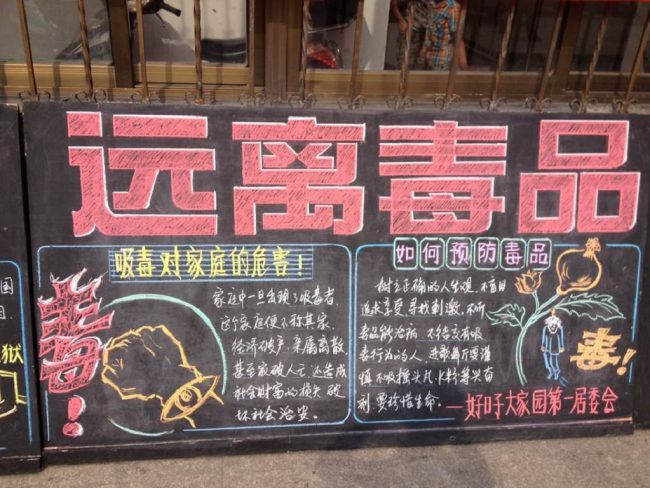 远离毒品
国
狱
毒!
吸毒对家庭的危害!
家庭中一旦出现了吸毒者,
这个家庭便不称其家,
经济破产,亲属离散,
甚至家破人亡 还造成
社会财富的损失 破
坏社会治安。
如何预防毒品
树立正确的人生观,不盲目
追求享受 寻找刺激,不听
毒品能治病 不结交有吸
毒行为的人 进歌舞厅要谨
慎不吸摇头丸,K粉等兴奋
剂,要珍惜生命。
毒!
—好时大家园第一居委会